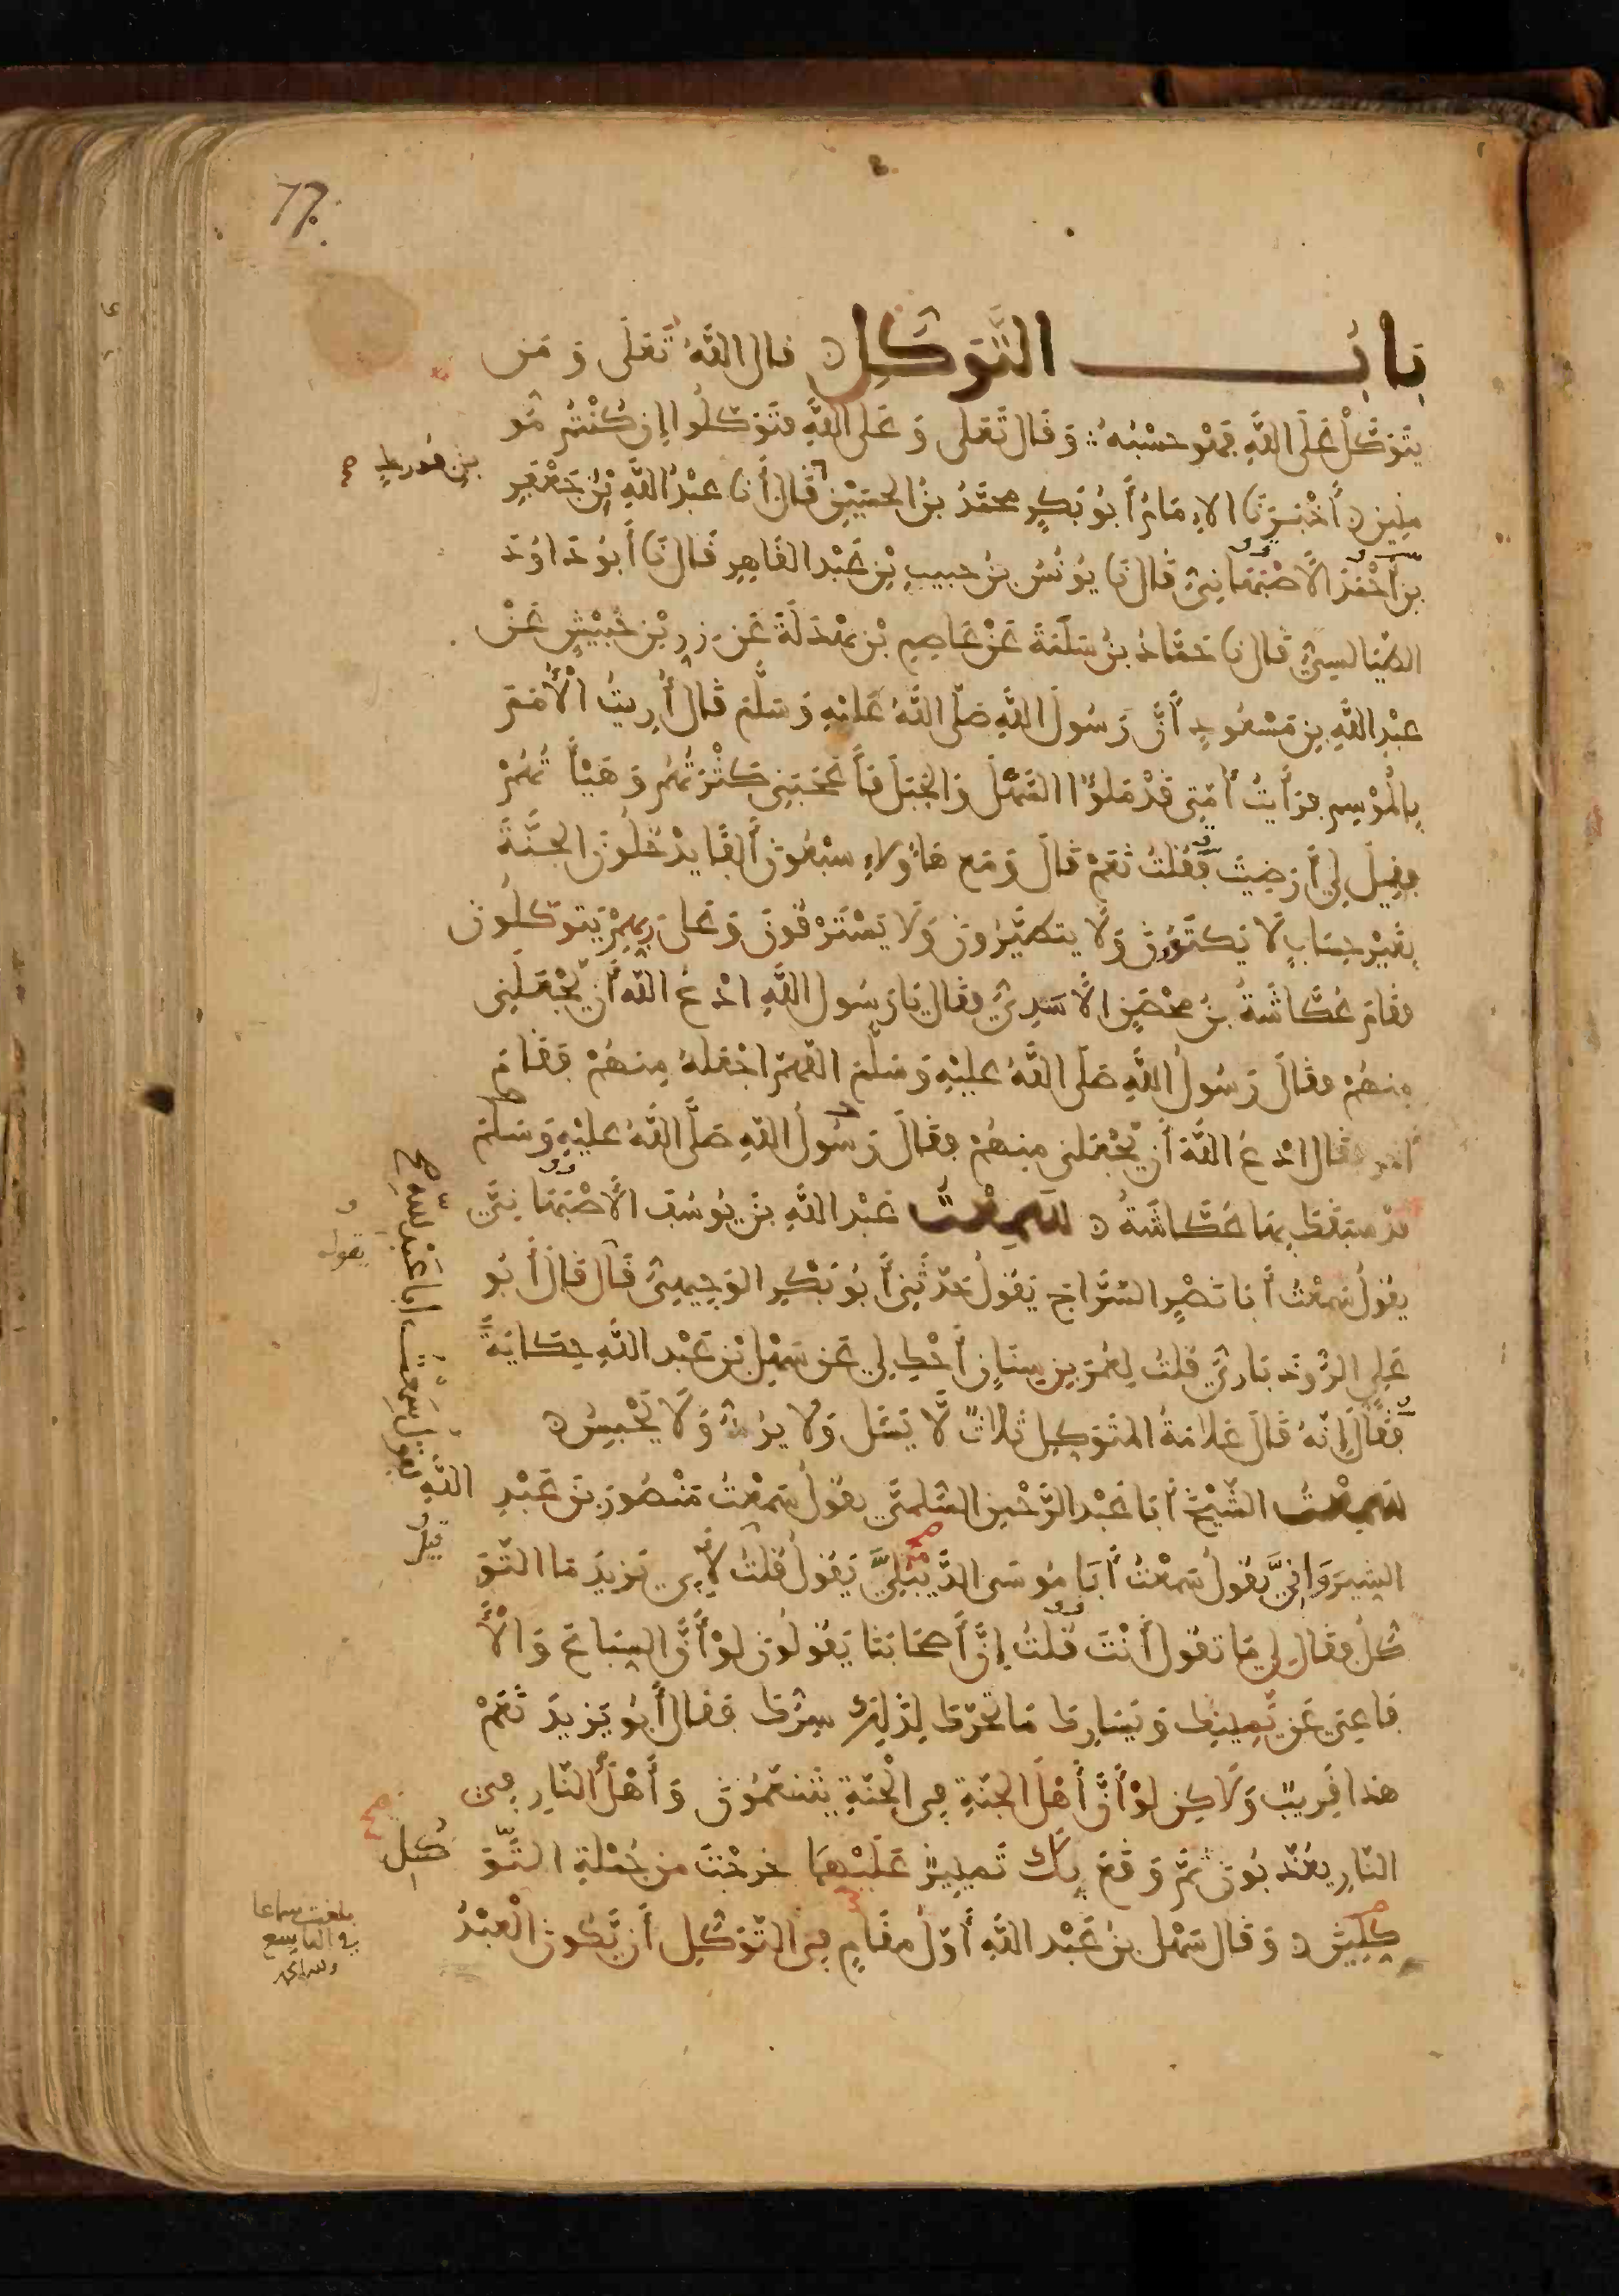 77
باب التَّوَكُّل قال اللّٰهُ تَعَلَى وَمَن
يَتَوَكَّلْ عَلَى اللَّهِ فَهْوَ حَسْبُهُ وَقَالَ تَعَلى وَعَلى اللَّهِ فتَوَكَّلُوا إن كُنْتُمْ مُو
منِين أَخْبَرَنَا الإمَامُ أبُو بَكرٍ محمَّدُ بنُ الحسَيْن قَالَ أنا عبْدُ اللَّهِ بْنُ جَعْفَرِ
بنِ فُورك صح
بنِ أحْمَدَ الأصْبَهَانِيُّ قَالَ نَا يُونُسُ بنُ حبيبِ بْنِ عَبْد القَاهِر قَالَ نَا أبُو دَاوُدَ
الطيَالسِيُّ قَالَ نا حَمَّادُ بنُ سَلَمَةَ عَنْ عَاصِم بْنِ بَهْدَلَةَ عَن زِرِّ بْنِ حُبَيْشٍ عَنْ
عبْدِ اللَّهِ بنِ مَسْعُودٍ أنَّ رَسُولَ اللَّهِ صَلَّى اللَّهُ عَلَيْهِ وَسَلَّمَ قَالَ أُرِيتُ الْأُمَمَ
بِالْمَوْسِمِ فرَأَيتُ أُمَّتِي قَدْ مَلَوُا السَّهْلَ وَالجَبَلَ فَأَعْجَبَنِي كَثْرَتُهُم وَهَيْأَتُهُمْ
فقِيلَ لِي أَرَضِيتَ فَقُلتُ نَعَمْ قَالَ وَمَع هَاؤُلاءِ سبْعُونَ ألفًا يدْخُلُونَ الجَنَّةَ
بِغَيْرِ حِسَابٍ لَا يَكتَوُونَ وَلَا يتطَيَّرُونَ وَلَا يَسْتَرْقُونَ وَعَلى رَبِهِمْ يَتوَكلُون
فقَامَ عُكَّاشَةُ بنُ محْصَنِ الأسَدِيُّ فقَالَ يَا رَسُولَ اللَّهِ ادْعُ اللَّهَ أن يَّجْعَلَنِى
منهُمْ فقَالَ رَسُولُ اللَّهِ صَلَّى اللَّهُ عَلَيْهِ وَسَلَّمَ اللَّهُمَّ اجْعَلهُ مِنهُمْ فَقَامَ
آخر فقَال ادْعُ اللَّهَ أن يَّجْعَلنى مِنهُمْ فقَالَ رَسُولُ اللَّهِ صَلَّى اللَّهُ عليْهِ وَسَلَّمَ
قدْ سَبَقَكَ بِهَا عُكَّاشَةُ سَمِعْتُ عَبْدَ اللَّهِ بْنَ يُوسُفَ الأَصْبَهَانِىَّ
يقُولُ سَمِعْتُ أَبَا نَصْرٍ السَّرَّاجَ يَقُولُ حَدَّثَنِي أَبُو بَكْرٍ الوَجِيهِيُّ قَالَ قَالَ أَبُو
يقوله
عَلِي الرُّوذبَارِيُّ قلتُ لِعُمَرَ بنِ سِنَانٍ أَحْكِ لِي عَن سَهْلِ بْنِ عَبْد اللَّهِ حِكَايَةً
فَقَالَ إنهُ قَالَ عَلامَةُ المتَوَكِلِ ثلاثٌ لَا يَسْئَل وَلا يَرُدُّ وَلَا يَحْبِسُ
سَمِعْتُ الشَّيْخَ أَبَا عَبْدِ الرَّحْمنِ السُّلَمِىَّ يقُولُ سَمِعْتُ مَنْصُورَ بنَ عَبْدِ اللَّهِ
يقول سَمِعْتُ أبا عَبْدِ اللَّهِ صح
الشِيرَوَانِيَّ يقُولُ سَمِعْتُ أَبَا مُوسَى الدَّيْبُلِيَّ يَقُولُ قُلتُ لأبى يَزيدَ مَا التَّوَ
كُلُ فقَالَ لِي مَا تَقُولُ أَنْتَ قُلتُ إنَّ أصحَابَنَا يَقُولُونَ لَوْ أَنَّ السِبَاعَ وَالأ
فاعِىَ عَن يَّمِينِكَ وَيَسَارِكَ مَا تَحَرَّكَ لِذَلِكَ سِرُّكَ فَقَالَ أَبُو يَزِيدَ نَعَمْ
هذا قرِيبٌ وَلَاكِن لوْ أَنَّ أَهْلَ الجنَّةِ فِى الْجَنَّةِ يَتَنَعَّمُونَ وَأَهْلَ النَّارِ فِي
النَّارِ يعَذَّبُونَ ثُمَّ وَقَعَ بِكَ تَمْيِيزٌ عَلَيْهِمَا خرجْتَ من جُمْلةِ التَّوَ
كُلِ
كِلِينَ وَقَالَ سَهْل بنُ عَبْدِ اللَّهِ أوّلُ مقَامٍ فِى التَّوَكُّلِ أن يَّكُونَ الْعَبْدُ
بلغت سماعا
في التاسع